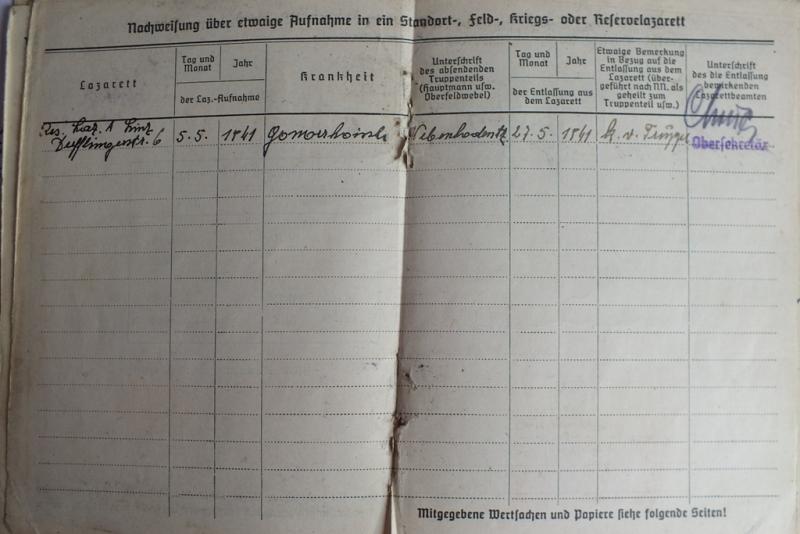 Nachweisung über etwaige Aufnahme in ein Standort-, Feld-, Kriegs- oder Reservelazarett
Lazarett
Tag und
Monat
Jahr
der Laz.-Aufnahme
Krankheit
Unterschrift
des absendenden
Truppenteils
(Hauptmann usw.
Oberfeldwebel)
Tag und
Monat
Jahr
der Entlassung aus
dem Lazarett
Etwaige Bemerkung
in Bezug auf die
Entlassung aus dem
Lazarett (über-
geführt nach NN. als
geheilt zum
Truppenteil usw.)
Unterschrift
des die Entlassung
bewirkenden
Lazarettbeamten
Res. Laz. A Linz
6
5.5.
1941
27.5.
1941
Obersekretär
Mitgegebene Wertsachen und Papiere siehe folgende Seiten!